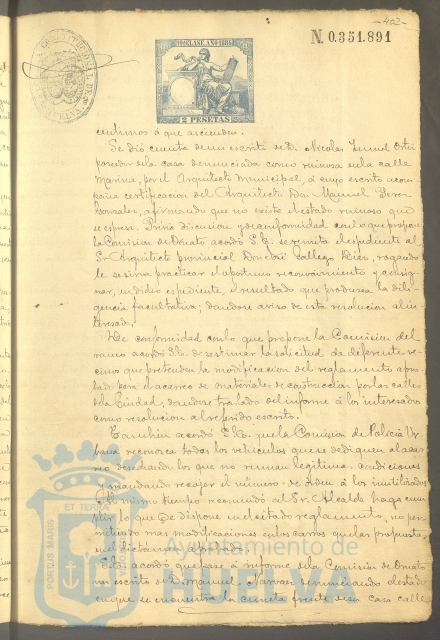 402
N. 0.351.891
2 PESETAS
centimos á que ascienden.
Se dió cuenta de un escrito de D. Nicolas
poseedor de la casa denunciada como ruinosa en la calle
Marina, por el Arquitecto Municipal, á cuyo escrito acom-
paña certificacion del Arquitecto Don Manuel Perez
Gonzalez, afirmando que no existe el estado ruinoso que
se espresa. Prévia discusion y de conformidad con lo que propone
la Comision de Ornato acordó S.E. se remita el espediente al
Sr Arquitecto provincial Don José Gallego Diaz, rogando
le se sirva practicar el oportuno reconocimiento y consig-
nar, en dicho espediente, el resultado que produzca la dili-
gencia facultativa; dandose aviso de esta resolucion al in-
teresado.
De conformidad con lo que propone la Comision del
ramo acordó S.E. desestimar la solicitud de diferentes ve-
cinos que pretenden la modificacion del reglamento apro-
bado para el acarreo de materiales de construccion por las calles
de la Ciudad, dandose traslado del informe á los interesados
como resolucion al referido escrito.
Tambien acordó S.E. que la Comision de Policia Ur-
bana reconozca todos los vehiculos que se dediquen al acar-
reo desechando los que no reunan legitimas condiciones
y mandando recoger el número de órden á los inutilizados
Al mismo tiempo recomendó al Sr. Alcalde haga cum-
plir lo que se dispone en el citado reglamento, no per-
mitiendo mas modificaciones en los carros que las propuestas
en el dictamen aprobado.
Se acordó que pase á informe de la Comision de Ornato
un escrito de D. Manuel Narvaez denunciando el estado
en que se encuentra la cuneta frente de su casa calle
PORTUS MARIS
ET TERRA
Ayuntamiento de